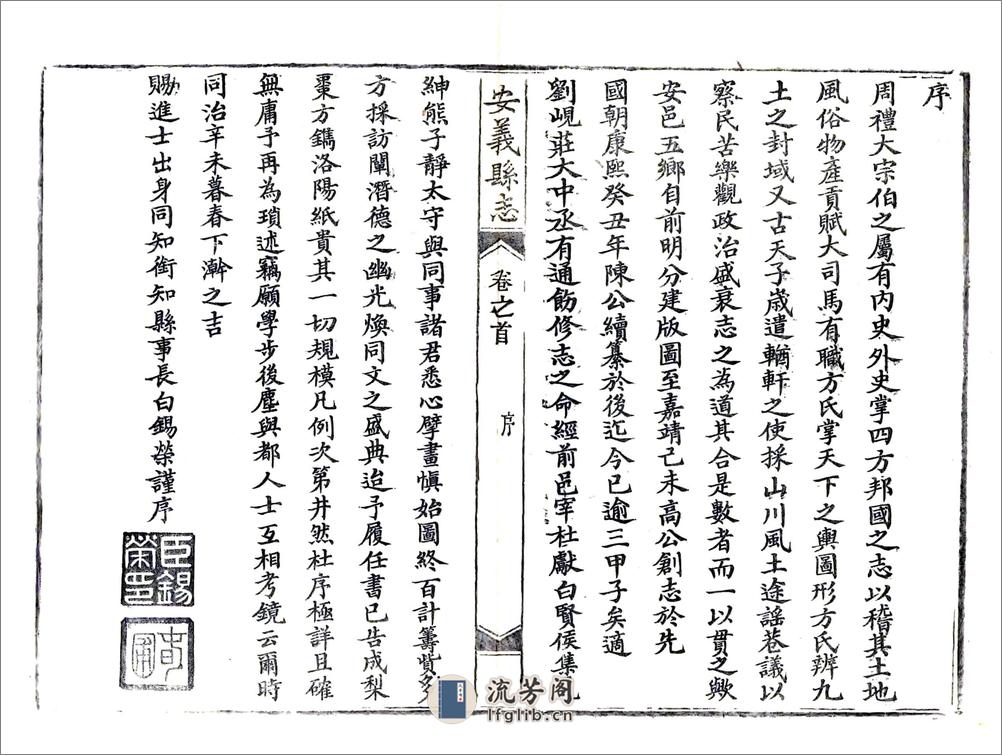 序
周禮大宗伯之屬有內史外史掌四方邦國之志以稽其土地
風俗物產貢賦大司馬有職方氏掌天下之輿圖形方氏辨九
土之封域又古天子歲遣輶軒之使採山川風土途謠巷議以
察民苦樂觀政治盛衰志之為道其合是數者而一以貫之歟
安邑五鄉自前明分建版圖至嘉靖己未高公創志於先
國朝康熙癸丑年陳公續纂於後迄今已逾三甲子矣適
劉峴莊大中丞有通飭修志之命經前邑宰杜獻白賢侯集
安義縣志
卷之首
序
紳熊子靜太守與同事諸君悉心擘畫慎始圖終百計籌貲多
方採訪闡潛德之幽光煥同文之盛典迨予履任書已告成梨
棗方鐫洛陽紙貴其一切規模凡例次第井然杜序極詳且確
無庸予再為瑣述竊願學步後塵與都人士互相考鏡云爾時
同治辛未暮春下澣之吉
賜進士出身同知銜知縣事長白錫榮謹序
臣錫
榮印
流芳阁
lfglib.cn